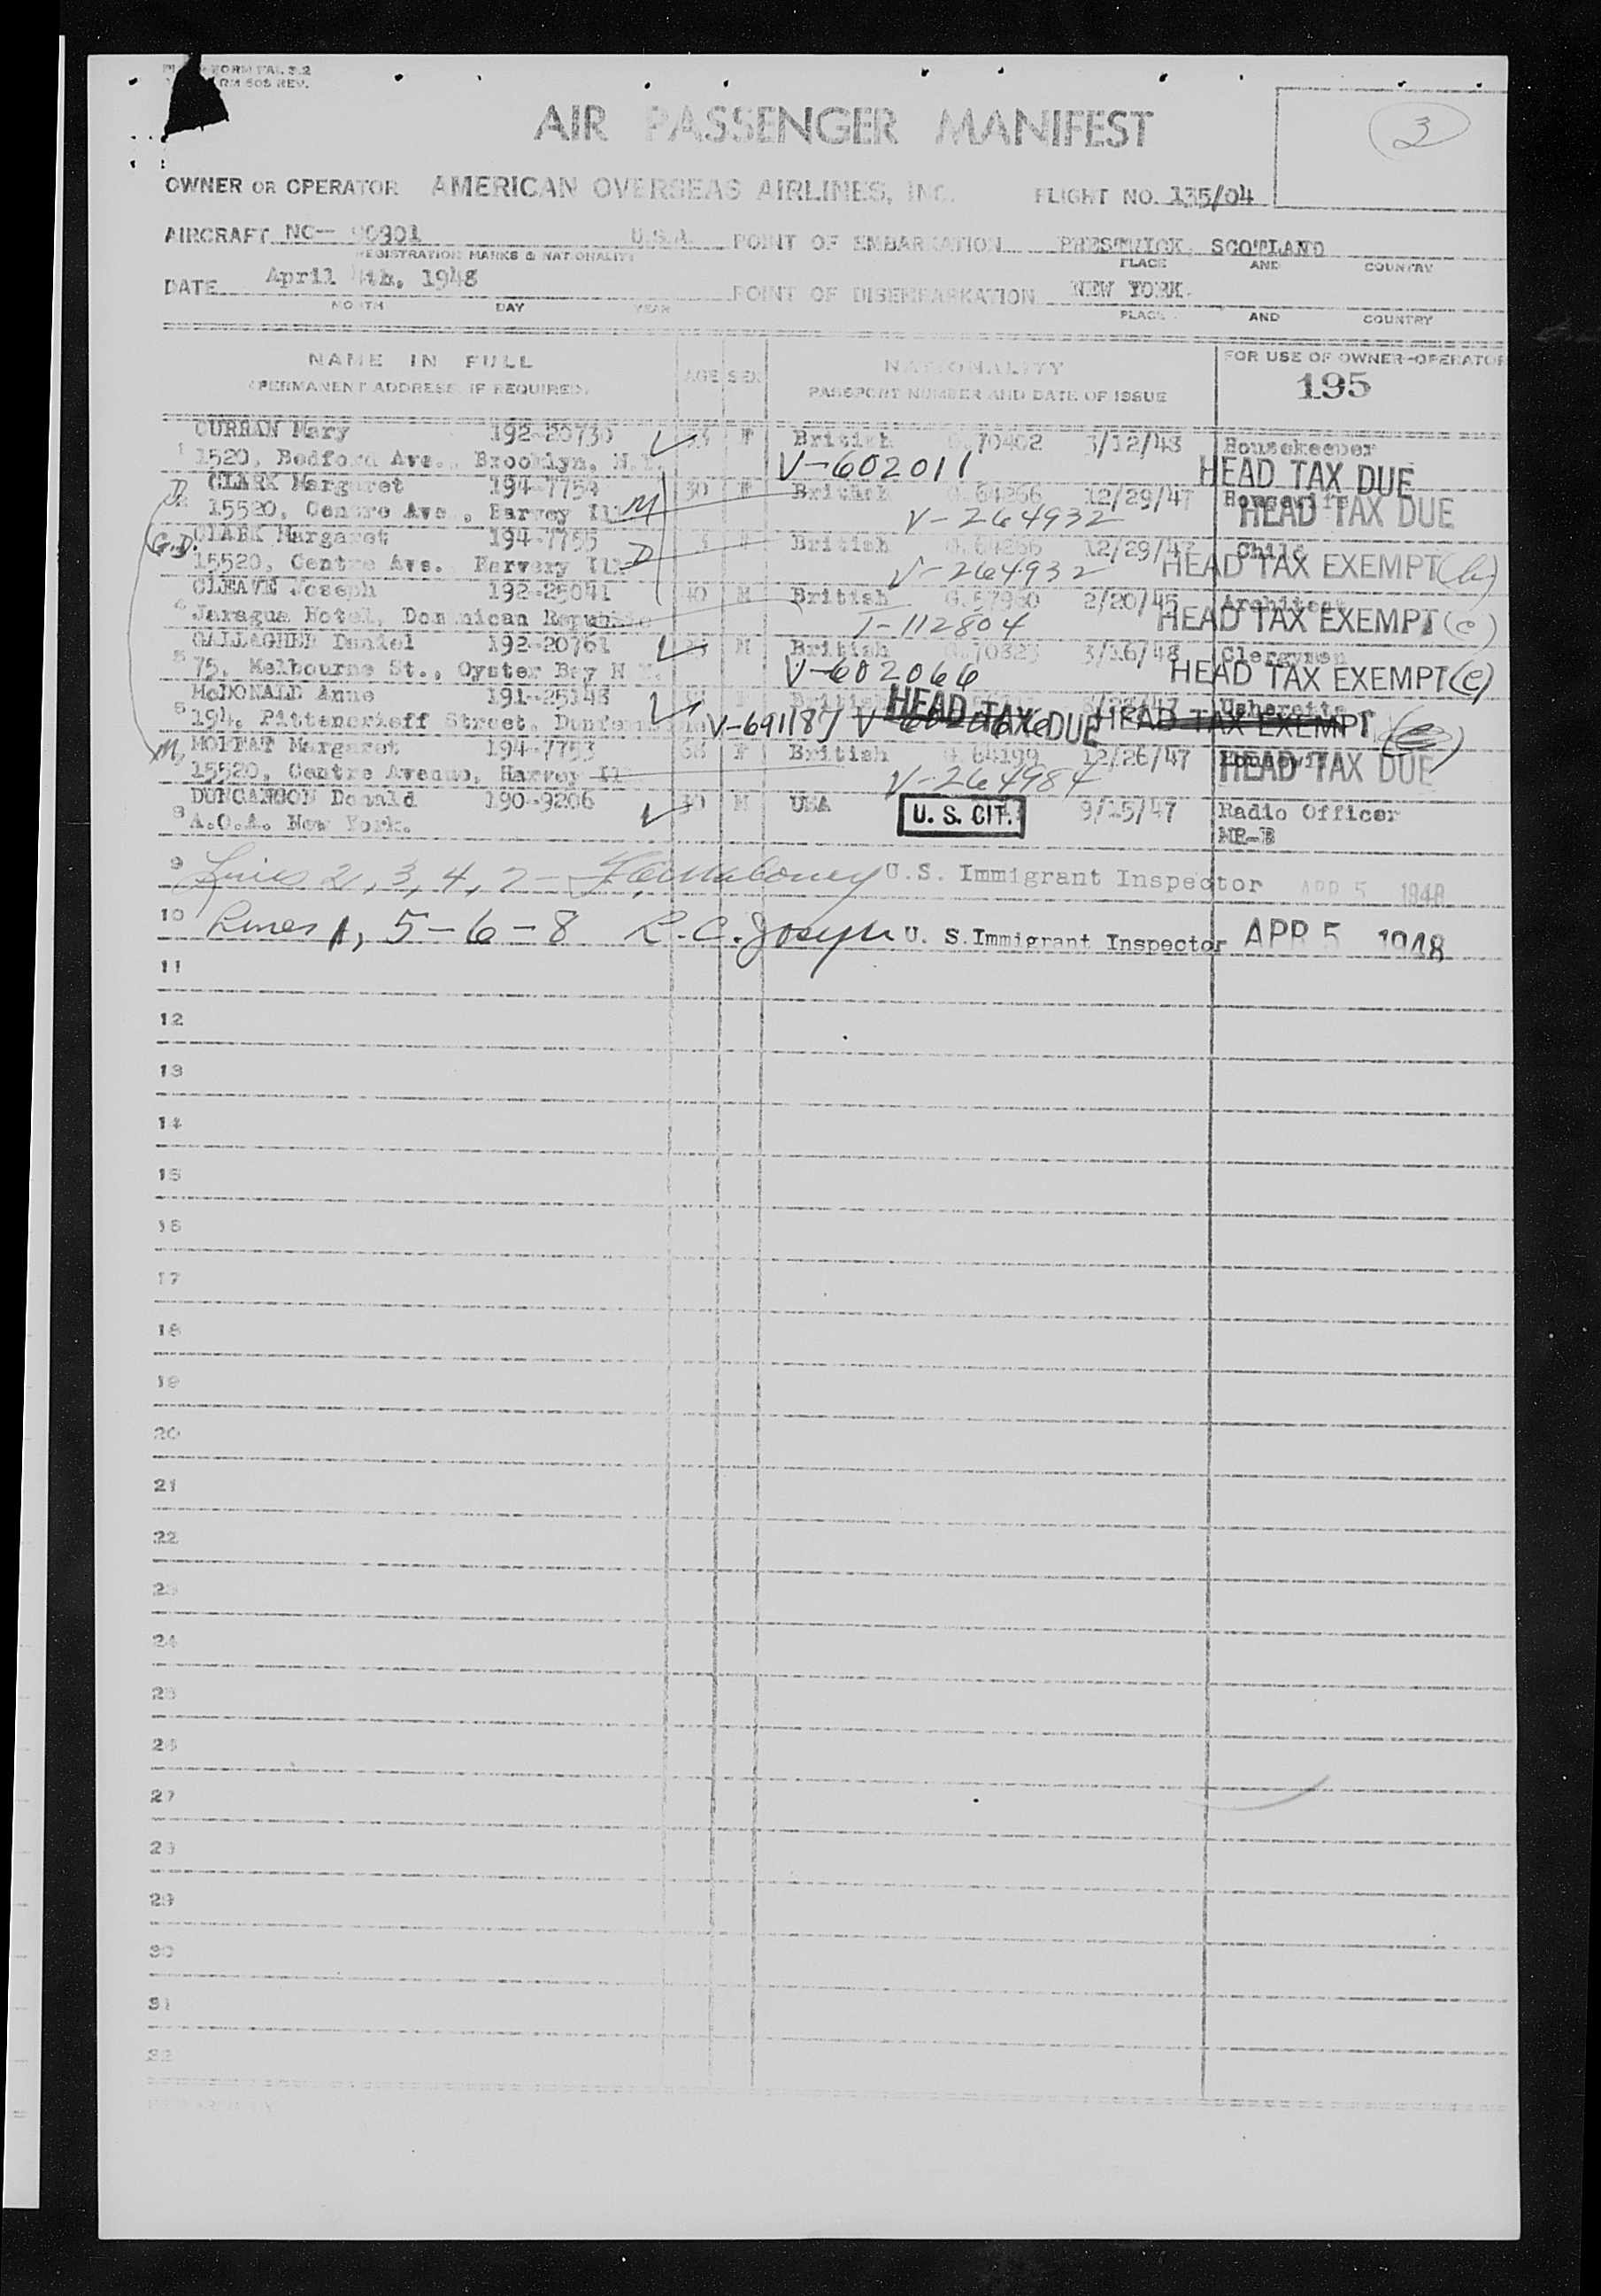 FORM 505 REV.
AIR PASSENGER MANIFEST
3
OWNER OR OPERATOR AMERICAN OVERSEAS AIRLINES, INC. FLIGHT NO. 135/04
AIRCRAFT NC-- 90901 U.S.A. POINT OF EMBARKATION PRESTWICK, SCOTLAND
REGISTRATION MARKS & NATIONALITY PLACE AND COUNTRY
DATE April 4th, 1948 POINT OF DISEMBARKATION NEW YORK.
MONTH DAY YEAR PLACE AND COUNTRY
NAME IN FULL AGE SEX NATIONALITY FOR USE OF OWNER-OPERATOR
(PERMANENT ADDRESS IF REQUIRED) PASSPORT NUMBER AND DATE OF ISSUE 195
CURRAN Mary 192-20730 F British G.70402 3/12/48 Housekeeper
1 1520, Bedford Ave., Brooklyn, N.Y. V-602011 HEAD TAX DUE
D CLARK Margaret 194-7754 M 30 F British G.64266 12/29/47 Housewife
2 15520, Centre Ave., Harvey Ill V-264932 HEAD TAX DUE
G.D. CLARK Margaret 194-7755 D F British G.64266 12/29/47 Child
15520, Centre Ave. Harvery Ill V-264932 HEAD TAX EXEMPT (h)
CLEAVE Joseph 192-25041 40 M British G.57980 2/20/45 Architect
4 Jaragua Hotel, Dominican Republic T-112804 HEAD TAX EXEMPT (e)
GALLAGHER Daniel 192-20761 M British G.70323 3/16/48 Clergyman
5 75, Melbourne St., Oyster Bay N Y. V-602066 HEAD TAX EXEMPT (e)
McDONALD Anne 191-25148 British HEAD TAX DUE Usherette
6 194, Pittencrieff Street, Dunferm V-691187 V-602066 HEAD TAX EXEMPT (e)
M, MOFFAT Margaret 194-7753 F British G.64199 12/26/47 Housewife
15520, Centre Avenue, Harvey Ill V-264984 HEAD TAX DUE
DUNCANSON Donald 190-9206 M USA U. S. CIT. 9/15/47 Radio Officer
8 A.O.A. New York. NR-B
9 Lines 2, 3, 4, 7 - U.S. Immigrant Inspector APR 5 1948
10 Lines 1, 5-6-8 R.C. Joseph U. S. Immigrant Inspector APR 5 1948
11
12
13
14
15
16
17
18
19
20
21
22
23
24
25
26
27
28
29
30
31
32